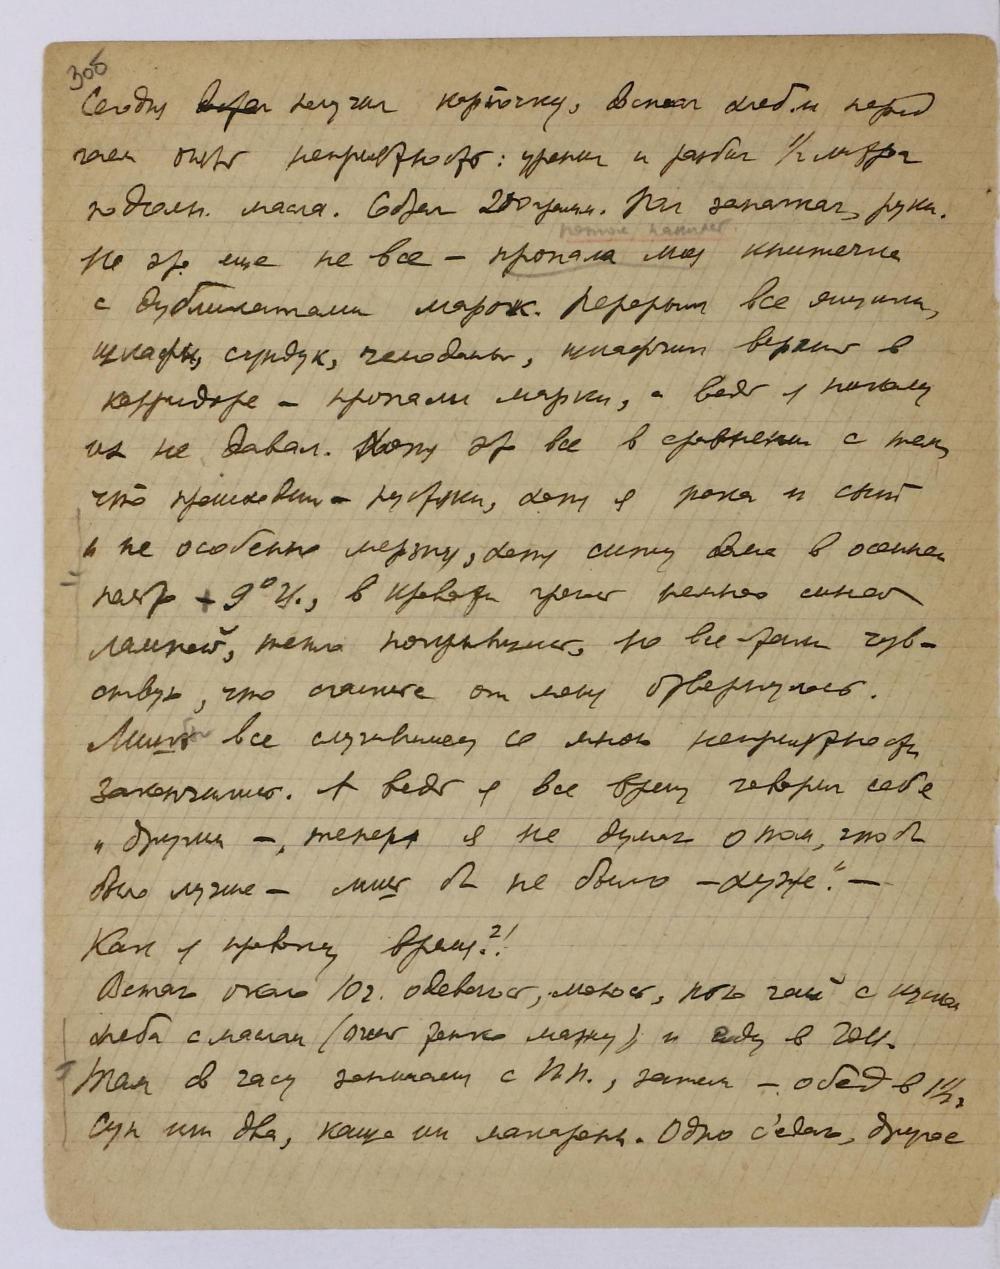 305
Сегодня получил карточку, достал хлеб и перед
чаем опять неприятность: уронил и разбил 1/2 литра
подсолн. масла. Собрал 200 грамм. Пол запачкал, руки.
потом нашлись.
Но это еще не все – пропала моя книжечка
с дубликатами марок. Перерыл все ящики,
шкафы, сундук, чемоданы, шкафчик в
корридоре – пропали марки, а ведь я никому
их не давал. Хотя это все в сравнении с тем
что происходит – пустяки, хотя я пока и сыт
и не особенно мерзну, хотя сижу дома в осеннем
пальто + 9° Ц., в кровати греюсь немного синей
лампой, тепло покрываюсь, но все-таки чув-
ствую, что счастье от меня отвернулось.
Лишь бы все случившиеся со мною неприятности
закончились. А ведь я все время говорил себе
и другим –, теперь я не думаю о том, чтоб
было лучше – лишь бы не было – хуже". –
Как я провожу время?!
Встаю около 10 ч. одеваюсь, моюсь, пью чай с куском
хлеба с маслом (очень тонко мажу) и иду в
Там в часу занимаюсь с П.П., затем – обед в 1 1/2
Суп или два, каша или макароны. Одно с'едаю, другое